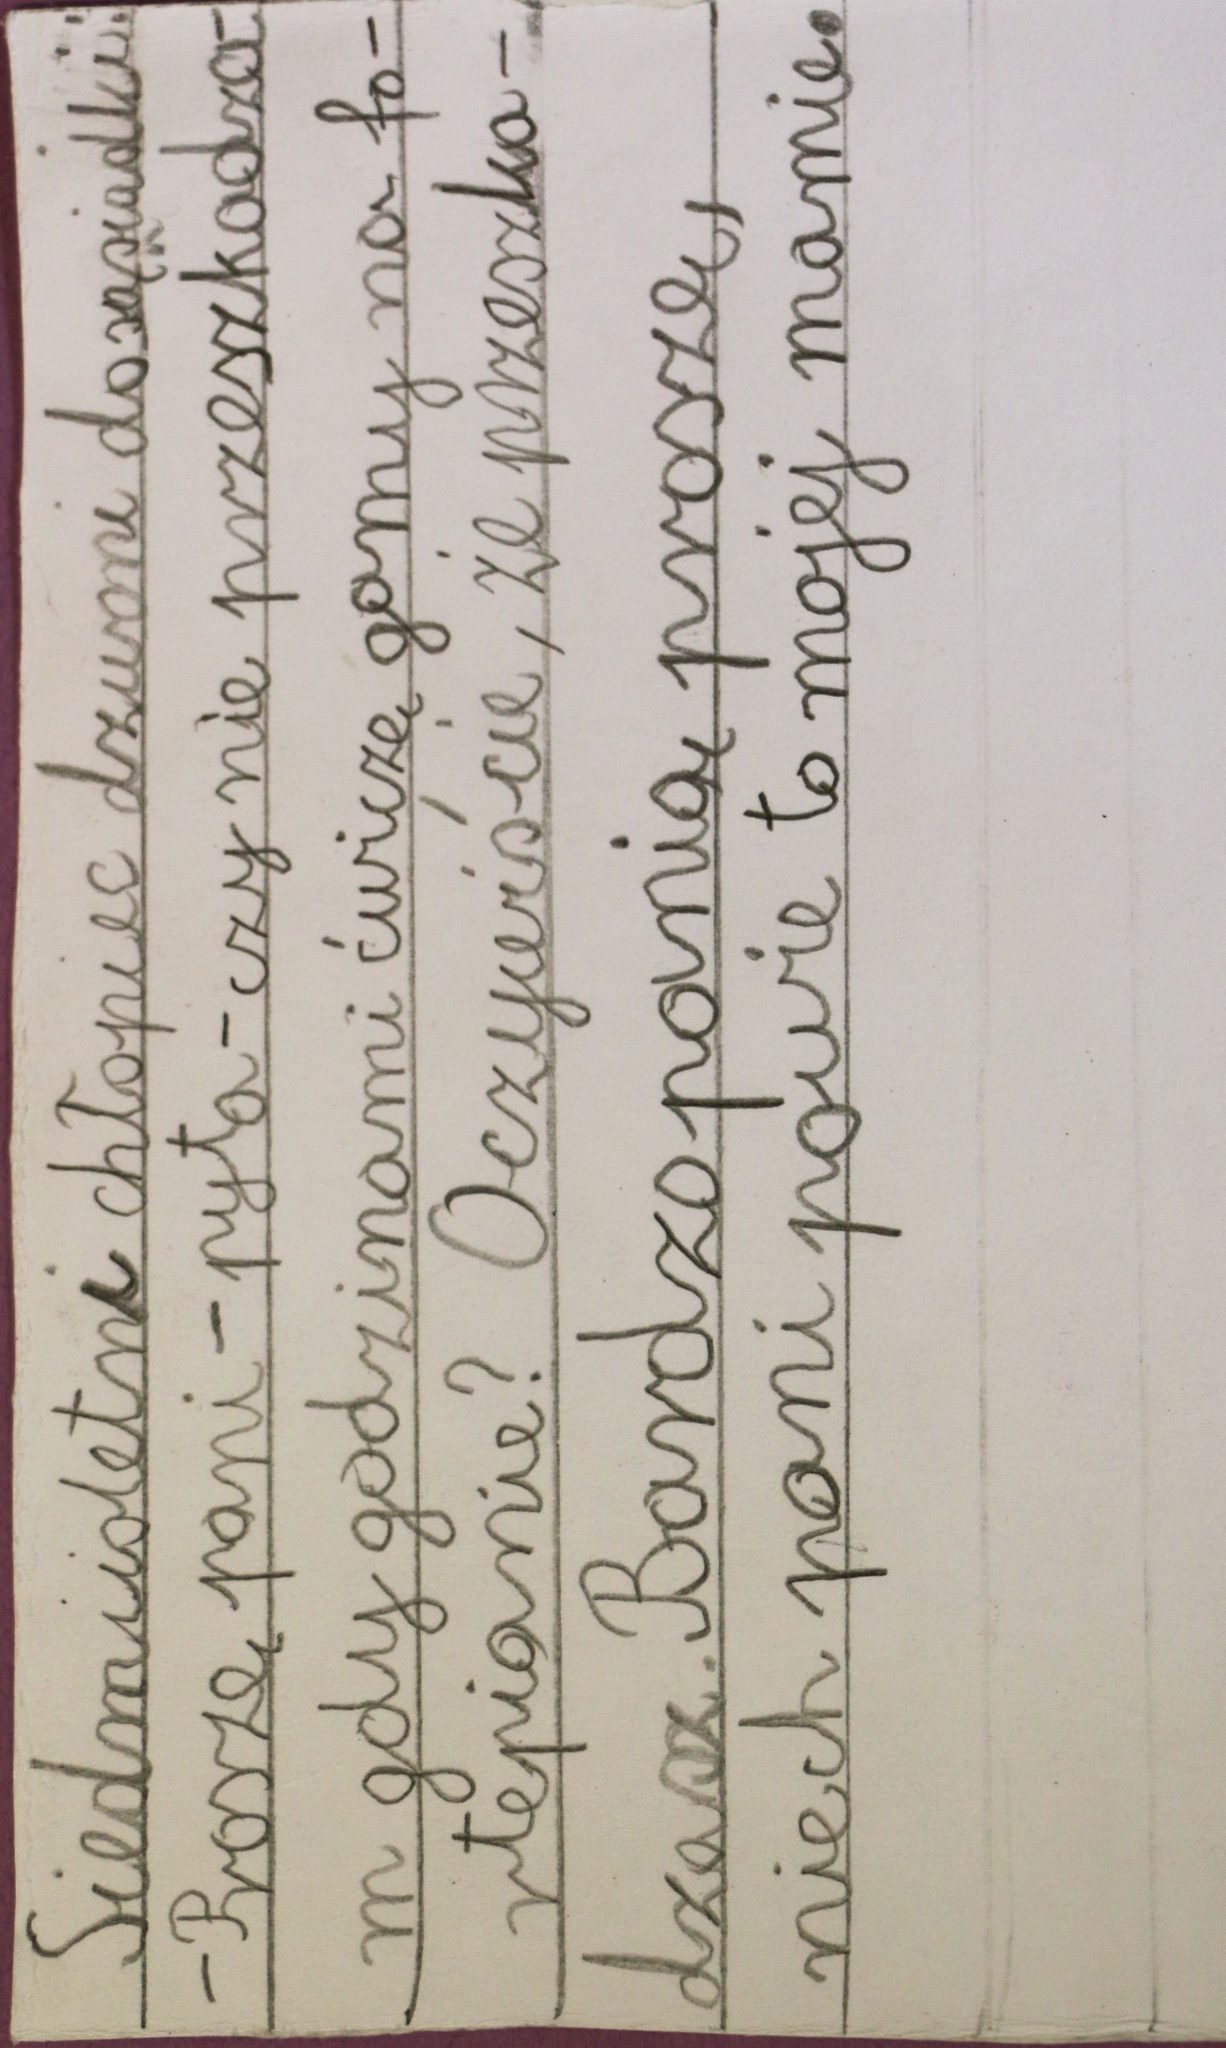 Siedmioletni chłopiec dzwoni do sąsiadki:
-Proszę pani - pyta - czy nie przeszkadza-
m gdy godzinami ćwiczę gamy na fo-
rtepianie? Oczywiście, że przeszka-
dzasz. Bardzo panią proszę,
niech pani powie to mojej mamie.